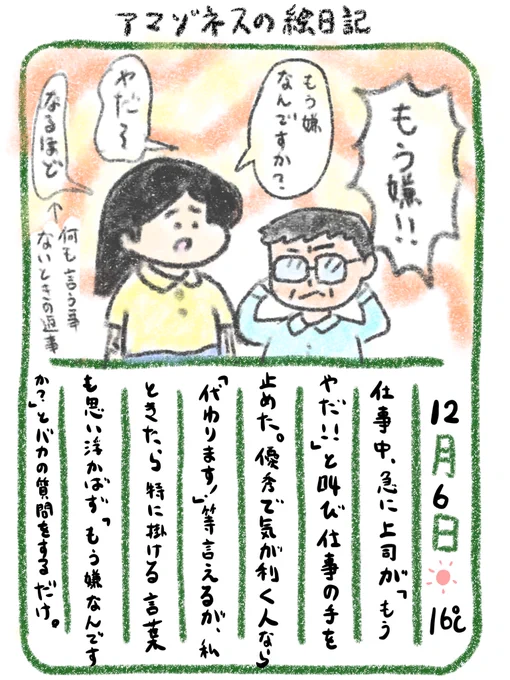 アマゾネスの絵日記
もう嫌!!
もう嫌
なんですか?
やだ〜
なるほど
↑
何も言う事
ないときの返事
12月6日 16℃
仕事中、急に上司が「もう
やだ!!」と叫び仕事の手を
止めた。優秀で気が利く人なら
「代わります!」等言えるが、私
ときたら特に掛ける言葉
も思い浮かばず「もう嫌なんです
か?」とバカの質問をするだけ。